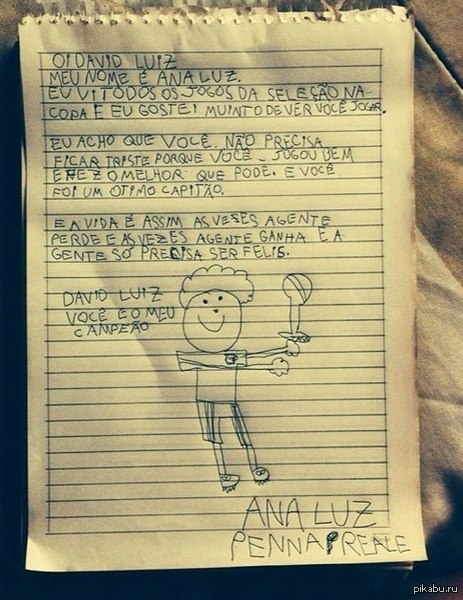 OI DAVID LUIZ
MEU NOME É ANA LUZ.
EU VI TODOS OS JOGOS DA SELEÇÃO NA
COPA E EU GOSTEI MUINTO DE VER VOCÊ JOGAR.
EU ACHO QUE VOCÊ NÃO PRECISA
FICAR TRISTE PORQUE VOCÊ JOGOU BEM
E FEZ O MELHOR QUE PODE. E VOCÊ
FOI UM OTIMO CAPITÃO.
E A VIDA É ASSIM AS VESES AGENTE
PERDE E AS VEZES AGENTE GANHA E A
GENTE SÓ PRECISA SER FELIS.
DAVID LUIZ
VOCÊ E O MEU
CAMPEÃO
ANA LUZ
PENNA REALE
pikabu.ru